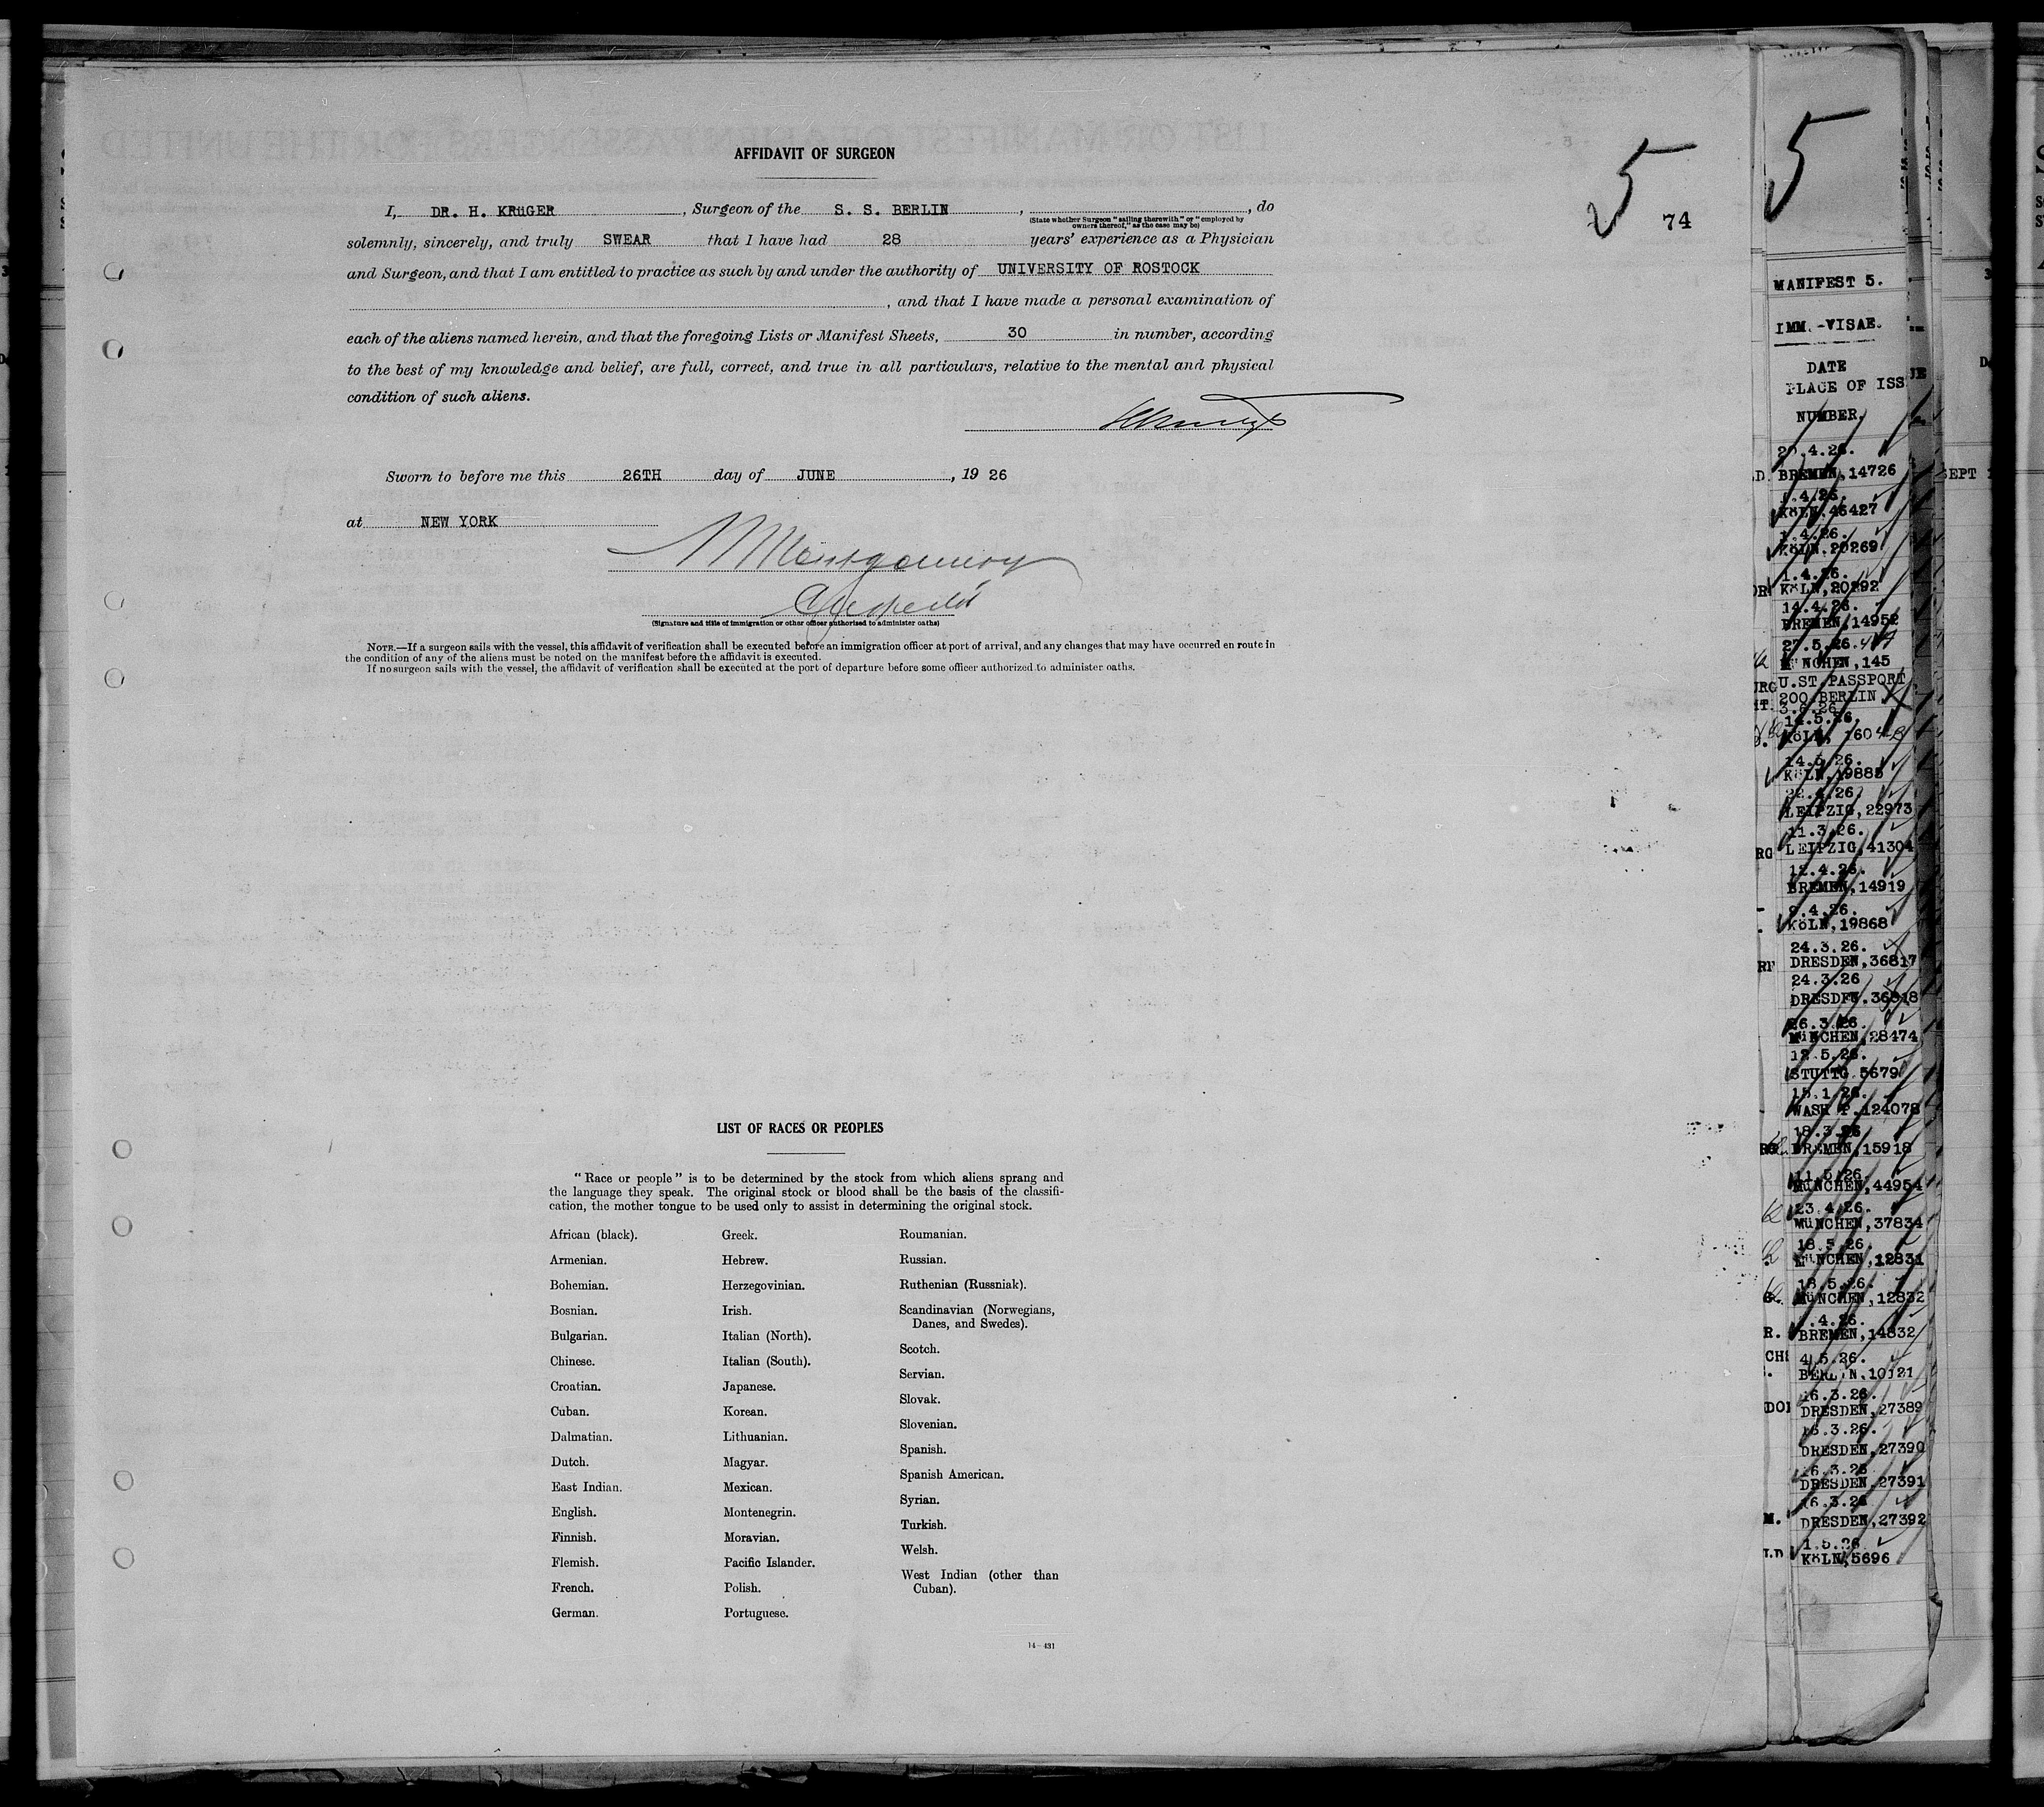 AFFIDAVIT OF SURGEON
5
74
I, DR. H. KRüGER, Surgeon of the S. S. BERLIN, , do
(State whether Surgeon "sailing therewith" or "employed by
owners thereof," as the case may be)
solemnly, sincerely, and truly SWEAR that I have had 28 years' experience as a Physician
and Surgeon, and that I am entitled to practice as such by and under the authority of UNIVERSITY OF ROSTOCK
, and that I have made a personal examination of
each of the aliens named herein, and that the foregoing Lists or Manifest Sheets, 30 in number, according
to the best of my knowledge and belief, are full, correct, and true in all particulars, relative to the mental and physical
condition of such aliens.
Sworn to before me this 26TH day of JUNE, 19 26
at NEW YORK
Montgomery
(Signature and title of immigration or other officer authorized to administer oaths)
NOTE.—If a surgeon sails with the vessel, this affidavit of verification shall be executed before an immigration officer at port of arrival, and any changes that may have occurred en route in
the condition of any of the aliens must be noted on the manifest before the affidavit is executed.
If no surgeon sails with the vessel, the affidavit of verification shall be executed at the port of departure before some officer authorized to administer oaths.
LIST OF RACES OR PEOPLES
"Race or people" is to be determined by the stock from which aliens sprang and
the language they speak. The original stock or blood shall be the basis of the classifi-
cation, the mother tongue to be used only to assist in determining the original stock.
African (black).
Armenian.
Bohemian.
Bosnian.
Bulgarian.
Chinese.
Croatian.
Cuban.
Dalmatian.
Dutch.
East Indian.
English.
Finnish.
Flemish.
French.
German.
Greek.
Hebrew.
Herzegovinian.
Irish.
Italian (North).
Italian (South).
Japanese.
Korean.
Lithuanian.
Magyar.
Mexican.
Montenegrin.
Moravian.
Pacific Islander.
Polish.
Portuguese.
Roumanian.
Russian.
Ruthenian (Russniak).
Scandinavian (Norwegians,
Danes, and Swedes).
Scotch.
Servian.
Slovak.
Slovenian.
Spanish.
Spanish American.
Syrian.
Turkish.
Welsh.
West Indian (other than
Cuban).
14—431
5
MANIFEST 5.
IMM.-VISAE.
DATE
PLACE OF ISS
NUMBER.
BREMEN, 14726
KöLN, 46427
1.4.26.
KöLN, 20269
1.4.26.
KöLN, 20292
14.4.26.
BREMEN, 14952
27.5.26.
MüNCHEN, 145
U.ST.PASSPORT
200 BERLIN
3.6.26
14.5.26.
KöLN,
14.5.26.
KöLN, 19885
22.4.26.
LEIPZIG, 22973
11.3.26.
LEIPZIG, 41304
12.4.26.
BREMEN, 14919
9.4.26.
KöLN, 19868
24.3.26.
DRESDEN, 36817
24.3.26
DRESDEN. 36818
26.3.26.
MüNCHEN, 28474
12.5.26.
STUTTG. 5679
15.1.26.
WASH P. 124078
18.3.26
BREMEN, 15918
11.5.26.
MüNCHEN, 44954
23.4.26.
MüNCHEN, 37834
18.5.26.
MüNCHEN, 12831
18.5.26.
MüNCHEN, 12832
.4.26.
BREMEN, 14832
4.5.26.
BERLIN, 10121
16.3.26.
DRESDEN, 27389
16.3.26.
DRESDEN, 27390
16.3.26
DRESDEN, 27391
16.3.26
DRESDEN, 27392
1.5.26
KöLN, 5696